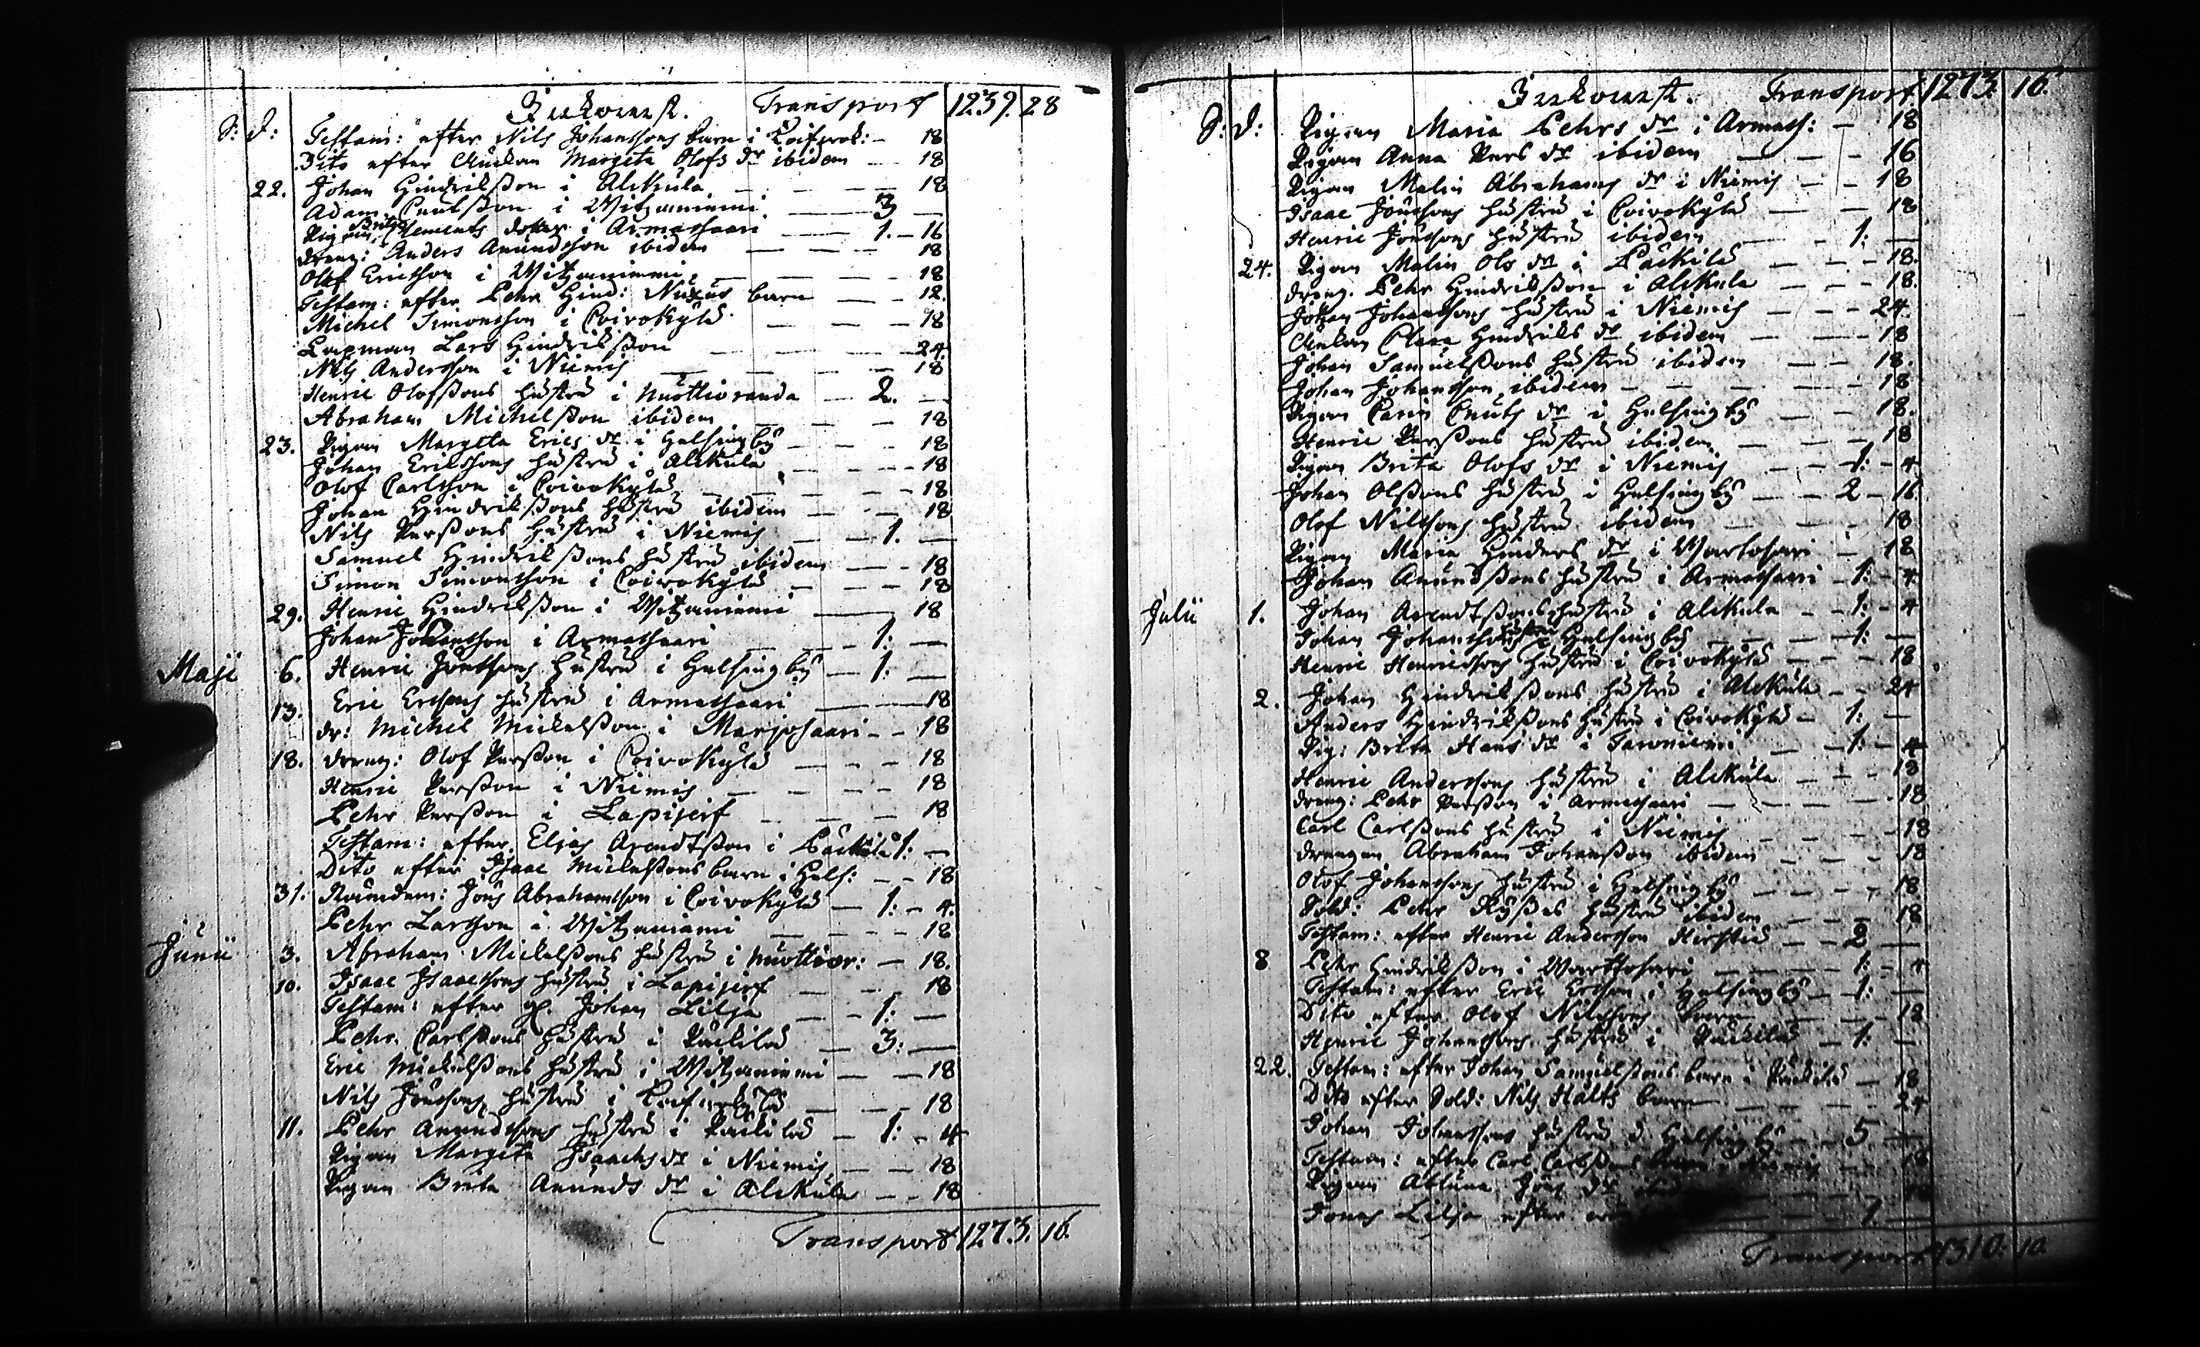 Inkomst. Transport 1239. 28
D: D:
Testam: efter Nils Johanssons barn i Koifwok: — 18
Dito efter Änkan Margeta Olofs dr ibidem — 18
22. Johan Hindriksson i Alckula — 18
Adam Cnutsson i Witzaniemi — 3 —
Pigan Brita Clements dotter i Armassaari — 1. — 16
dreng: Anders Anundsson ibidem — 18
Olof Ericsson i Witzaniemi — 18
Testam: efter Pehr Hind: barn — 12.
Michel Simonsson i Coivokylä — 18
Lapman Lars Hindriksson — 24.
Nils Andersson i Niemis — 18
Henric Olofssons hustru i Muottioranda — 2. —
Abraham Michelsson ibidem — 18
23. Pigan Margeta Erics dr i Helsingby — 18
Johan Ericssons hustru i Alckula — 18
Olof Carlsson i Coivokylä — 18
Johan Hindrikssons hustru ibidem — 18
Nils Perssons hustru i Niemis — 1. —
Samuel Hindrikssons hustru ibidem — 18
Simon Simonsson i Coivokylä — 18
29. Henric Hindriksson i Witzaniemi — 18
Johan Johansson i Armassaari — 1: —
Maji 6. Henric Jönssons hustru i Helsingby — 1: —
13. Eric Ersons hustru i Armassaari — 18
dr: Michel Mickelsson i Marjosaari — 18
18. dreng: Olof Persson i Coivokylä — 18
Henric Persson i Niemis — 18
Pehr Persson i Lapijerf — 18
Testam: efter Elias Arendtsson i Päckilä 1: —
Dito efter Isaac Mickelssons barn i Hels: — 18
31. Nämdem: Jöns Abrahamsson i Coivokylä — 1: — 4.
Pehr Larsson i Witzaniemi — 18
Junii 3. Abraham Mickelssons hustru i Muottior: — 18.
10. Isaac Isaacssons hustru i Lapijerf — 18
Testam: efter gl. Johan Lilja — 1: —
Pehr Carlssons hustru i Päckilä — 3: —
Eric Mickelssons hustru i Witzaniemi — 18
Nils Jönssons hustru i — 18
11. Pehr Anundssons hustru i Päckilä — 1: — 4
Pigan Margeta Isaachs dr i Niemis — 18
Pigan Brita Anunds dr i Alckula — 18
Transport 1273. 16.
Inkomst. Transport 1273. 16.
D: D:
Pigan Maria Pehrs dr i Armass: — 18
Pigan Anna Pers dr ibidem — 16
Pigan Malin Abrahams dr i Niemis — 18
Isaac Jönssons hustru i Coivokylä — 18
Henric Jönssons hustru ibidem — 1: —
24. Pigan Malin Ols dr i Päckilä — 18.
dreng. Pehr Hindriksson i Alckula — 18.
Johan Johanssons hustru i Niemis — 24.
Änkan Clara Hindriks dr ibidem — 18
Johan Samuelssons hustru ibidem — 18.
Johan Johansson ibidem — 18
Pigan Carin Cnuts dr i Helsingby — 18.
Henric Perssons hustru ibidem — 18
Pigan Brita Olofs dr i Niemis — 1: — 4
Johan Olssons hustru i Helsingby — 2 — 16
Olof Nilssons hustru ibidem — 18
Pigan Maria Hinders dr i — 18
Johan Anundssons hustru i Armassaari — 1: — 4
Julii 1. Johan Arendtssons hustru i Alckula — 1: — 4
Johan Johanssons hustru i Helsingby — 1: —
Henric Henricssons hustru i Coivokylä — 18
2. Johan Hindrikssons hustru i Alckula — 24
Anders Hindrikssons hustru i Coivokylä — 1: —
Pig: Brita Hans dr i — 1: — 4
Henric Anderssons hustru i Alckula — 18
dreng: Pehr Persson i Armassaari — 18
Carl Carlssons hustru i Niemis — 18
drengen Abraham Johansson ibidem — 18
Olof Johanssons hustru i Helsingby — 18
Sold: Pehr hustru ibidem — 18
Testam: efter Henric Andersson — 2 —
8 Pehr Hindriksson i — 1: — 4
Testam: efter Eric Ersson i Helsingby — 1: —
Dito efter Olof Nilssons barn — 18
Henric Johanssons hustru i Päckilä — 1: —
22. Testam: efter Johan Samuelssons barn i Päckilä — 18
Dito efter Sold: Nils Hälts barn — 24
Johan Johanssons hustru i Helsingby — 5 —
Testam: efter Carl Carlssons barn i Niemis — 18
Pigan Jöns dr
Jonas Lilja efter
Transport 1310. 10.